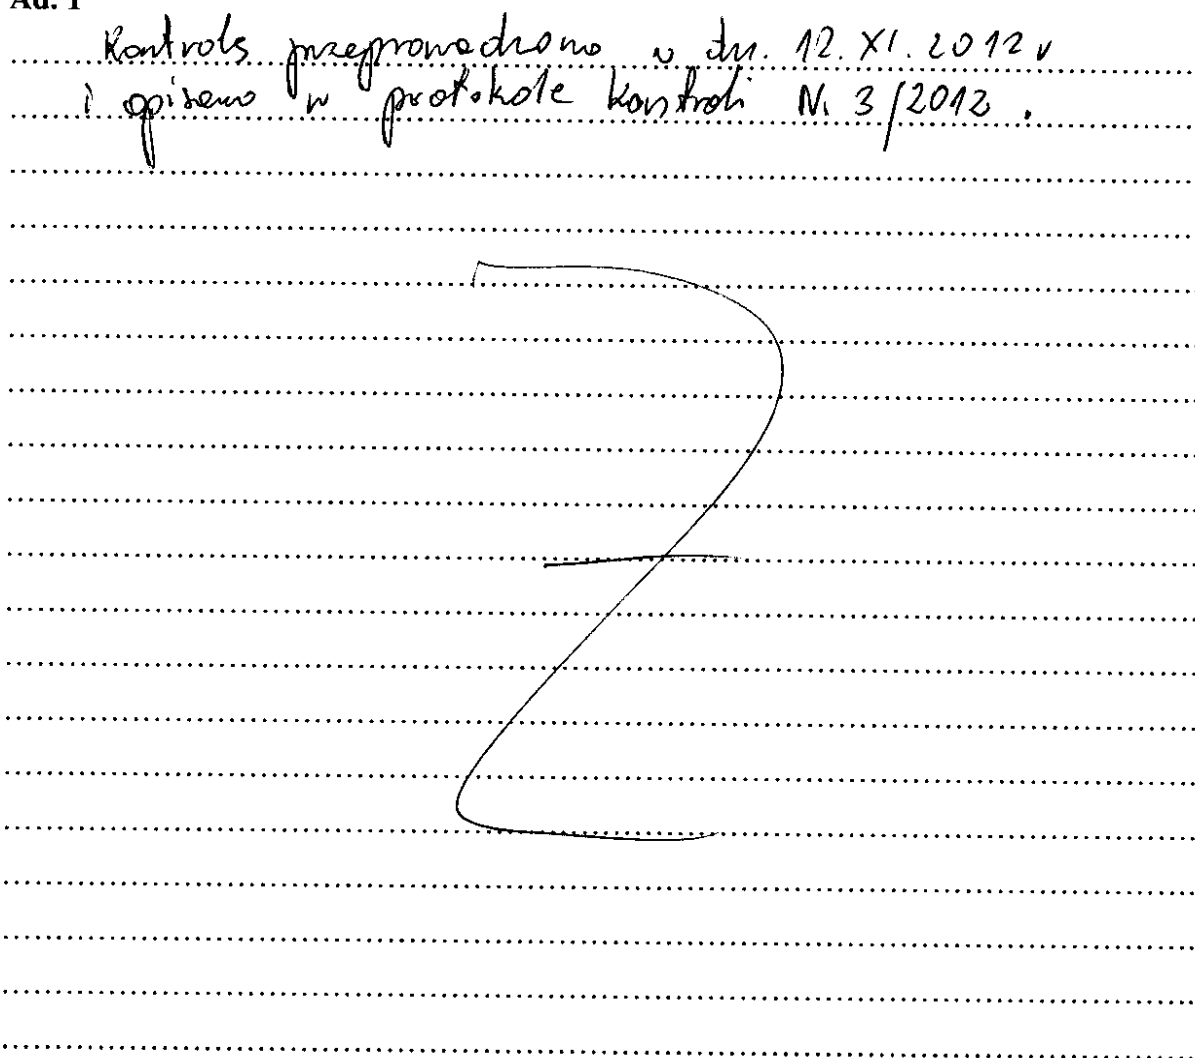 Ad. 1
Kontrolę przeprowadzono w dn. 12.XI.2012 r
i opisano w protokole kontroli Nr 3/2012.